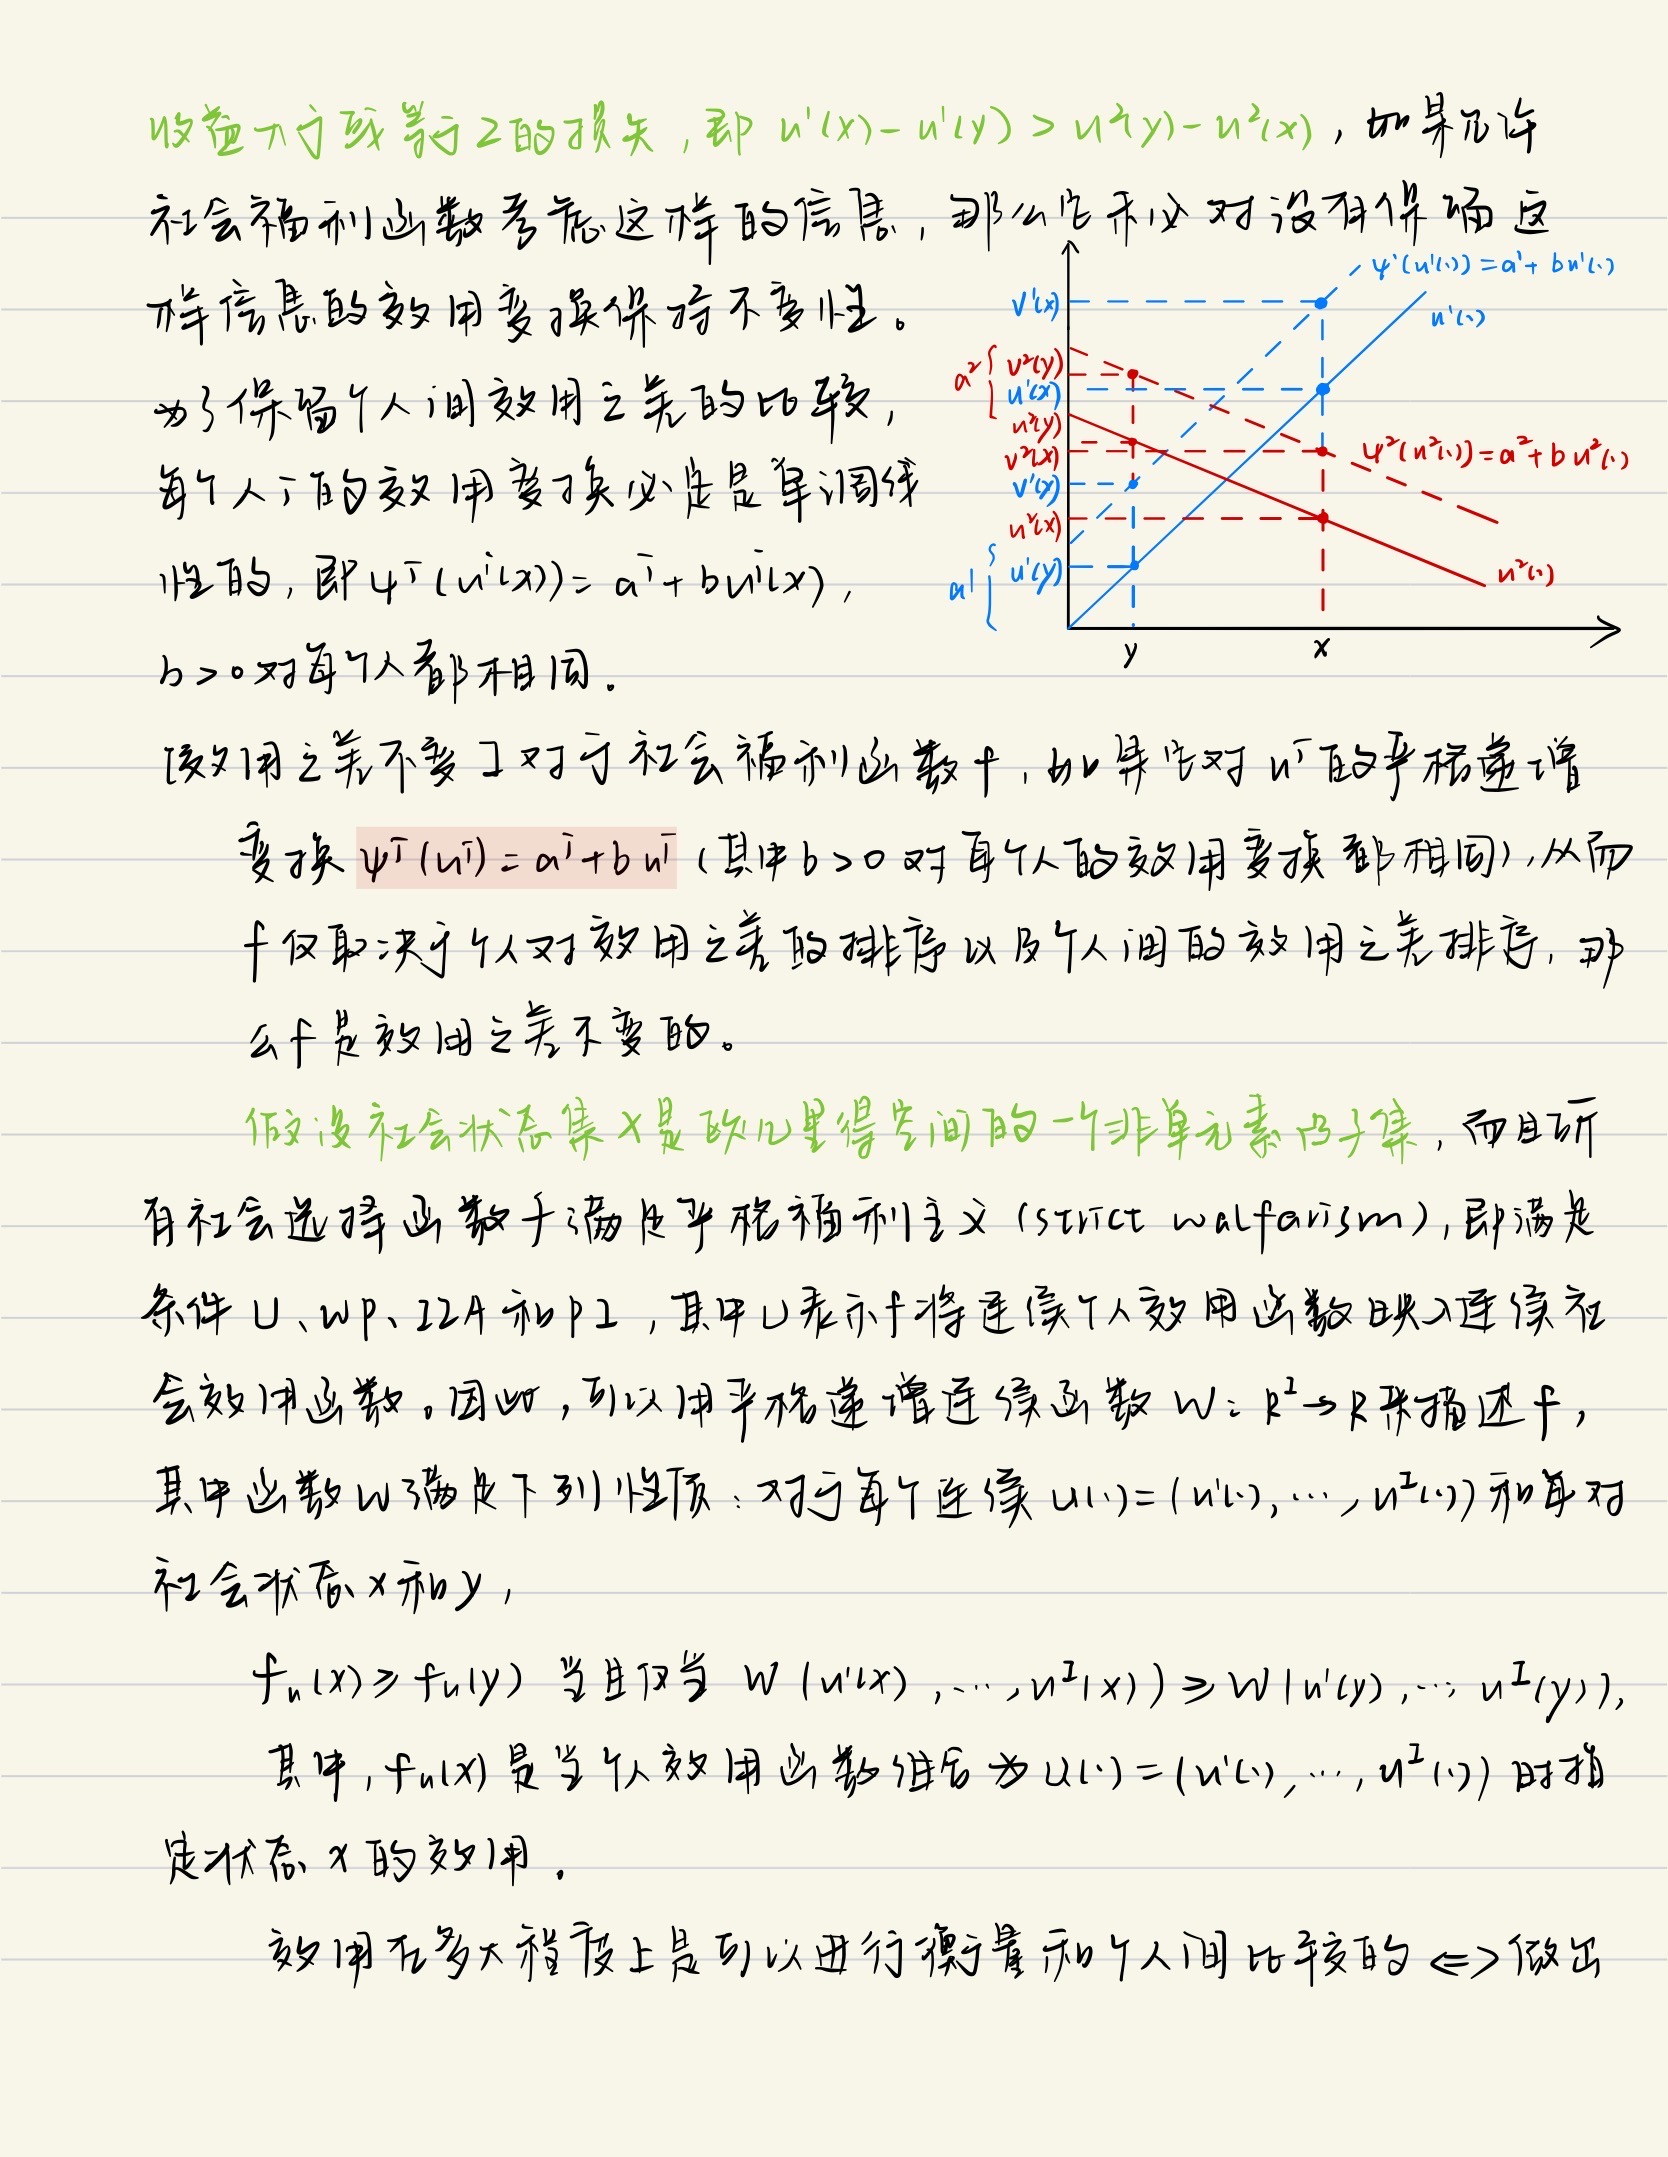 收益大于或等于2的损失，即 u¹(x)-u¹(y) > u²(y)-u²(x)，如果允许
社会福利函数考虑这样的信息，那么它未必对没有保留这
样信息的效用变换保持不变性。
为了保留个人间效用之差的比较，
每个人i的效用变换必定是单调线
性的，即 ψⁱ(uⁱ(x)) = aⁱ + buⁱ(x)，
b>0对每个人都相同.
ψ¹(u¹(·)) = a¹ + bu¹(·)
v¹(x)
u¹(·)
a²
v²(y)
u¹(x)
u²(y)
v²(x)
ψ²(u²(·)) = a² + bu²(·)
v¹(y)
u²(x)
a¹
u¹(y)
u²(·)
y
x
[效用之差不变]对于社会福利函数f，如果它对 uⁱ 的严格递增
变换 ψⁱ(uⁱ) = aⁱ + buⁱ (其中b>0对每个人的效用变换都相同)，从而
f仅取决于个人对效用之差的排序以及个人间的效用之差排序，那
么f是效用之差不变的。
假设社会状态集X是欧几里得空间的一个非单元素凸子集，而且所
有社会选择函数f满足严格福利主义 (strict walfarism)，即满足
条件 U、WP、IIA和PI，其中U表示f将连续个人效用函数映入连续社
会效用函数。因此，可以用严格递增连续函数 W: Rᴵ→R来描述f，
其中函数W满足下列性质：对于每个连续 u(·)=(u¹(·),…,uᴵ(·)) 和每对
社会状态x和y，
fu(x) ≥ fu(y) 当且仅当 W(u¹(x),…,uᴵ(x)) ≥ W(u¹(y),…,uᴵ(y))，
其中，fu(x)是当个人效用函数组合为 u(·)=(u¹(·),…,uᴵ(·)) 时指
定状态x的效用.
效用在多大程度上是可以进行衡量和个人间比较的 <=> 做出